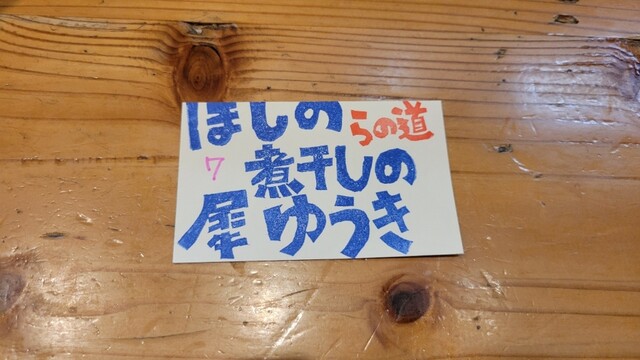 ほしの らの道
7 煮干しの
犀 ゆうき